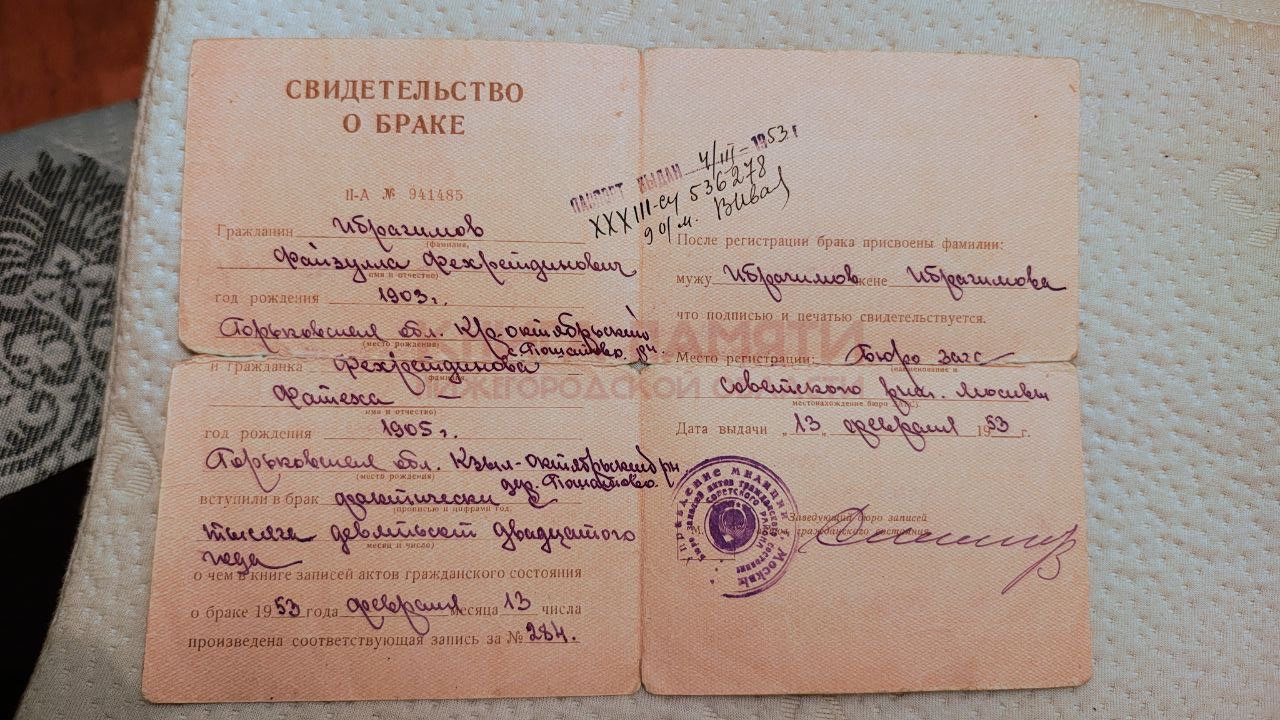 СВИДЕТЕЛЬСТВО
О БРАКЕ
II-А № 941485
Гражданин Ибрагимов
(фамилия,
Файзулла Фехрейдинович
имя и отчество)
год рождения 1903 г.
Горьковская обл. Кзр-октябрьский
(место рождения) с. Пошатово. р-н.
и гражданка Фехрейдинова
Фатеха —
имя и отчество)
год рождения 1905 г.
Горьковская обл. Кзыл-октябрьский рн
(место рождения) дер. Пошатово.
вступили в брак фактически
(прописью и цифрами год,
тысяча девятьсот двадцатого
месяц и число)
года
о чем в книге записей актов гражданского состояния
о браке 1953 года февраля месяца 13 числа
произведена соответствующая запись за № 284.
ПАСПОРТ ВЫДАН 4/III – 1953 г
XXXIII-су 536278
9 о/м.
После регистрации брака присвоены фамилии:
мужу Ибрагимов жене Ибрагимова
что подписью и печатью свидетельствуется.
Место регистрации: Бюро загс
(наименование и
Советского рна. Москвы
местонахождение бюро
Дата выдачи „13„ февраля 1953 г.
Заведующий бюро записей
актов гражданского состояния
УПРАВЛЕНИЕ МИЛИЦИИ г. МОСКВЫ
Бюро записей актов гражданского состояния
Советского района
ПАМЯТИ
НИЖЕГОРОДСКОЙ